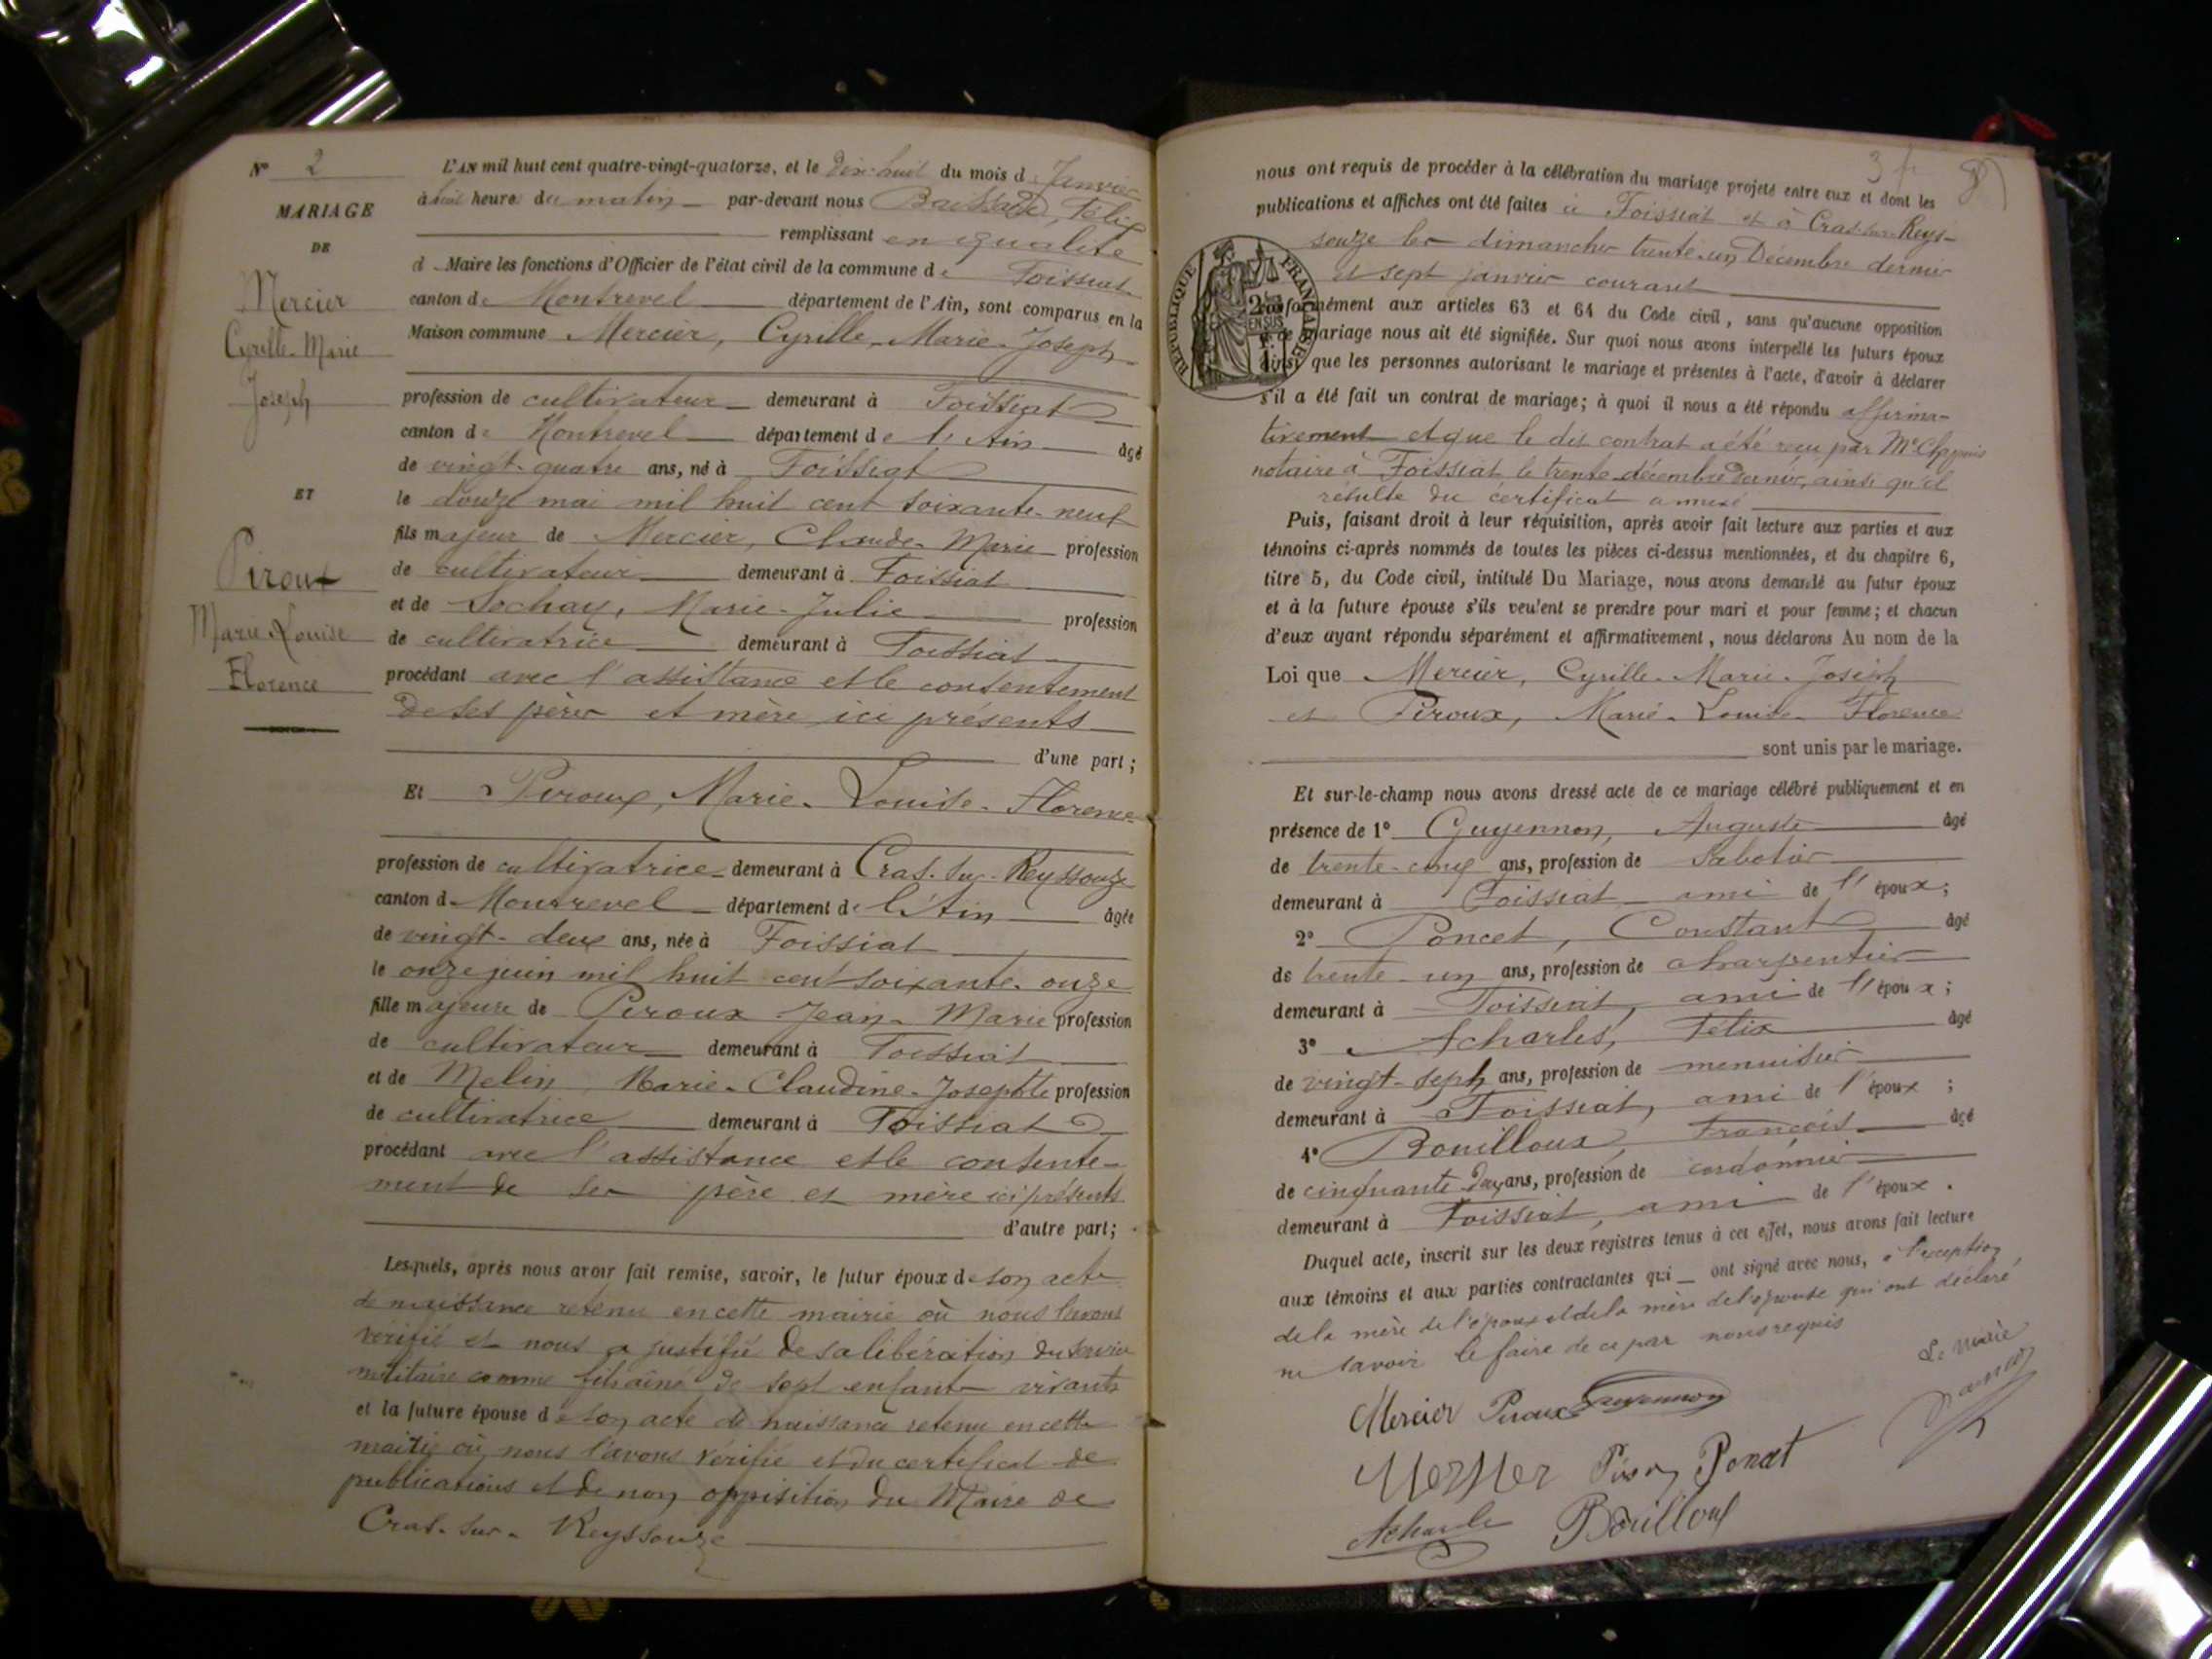 N° 2
MARIAGE
DE
Mercier
Cyrille-Marie
Joseph
ET
Piroux
Marie-Louise
Florence
L'AN mil huit cent quatre-vingt-quatorze, et le dix-huit du mois d Janvier
à huit heure du matin par-devant nous Félix
remplissant en qualité
d Maire les fonctions d'Officier de l'état civil de la commune de Foissiat
canton de Montrevel département de l'Ain, sont comparus en la
Maison commune Mercier, Cyrille-Marie-Joseph
profession de cultivateur demeurant à Foissiat
canton de Montrevel département de l'Ain âgé
de vingt-quatre ans, né à Foissiat
le douze mai mil huit cent soixante-neuf
fils majeur de Mercier, Claude-Marie profession
de cultivateur demeurant à Foissiat
et de Sochay, Marie-Julie profession
de cultivatrice demeurant à Foissiat
procédant avec l'assistance et le consentement
de ses père et mère ici présents
d'une part;
Et Piroux, Marie-Louise-Florence
profession de cultivatrice demeurant à Cras-sur-Reyssouze
canton d Montrevel département de l'Ain âgée
de vingt-deux ans, née à Foissiat
le onze juin mil huit cent soixante-onze
fille majeure de Piroux Jean-Marie profession
de cultivateur demeurant à Foissiat
et de Melin Marie-Claudine-Josephte profession
de cultivatrice demeurant à Foissiat
procédant avec l'assistance et le consente-
ment de ses père et mère ici présents
d'autre part;
Lesquels, après nous avoir fait remise, savoir, le futur époux de son acte
de naissance retenu en cette mairie où nous l'avons
vérifié et nous a justifié de sa libération du service
militaire comme fils aîné de sept enfants vivants
et la future épouse de son acte de naissance retenu en cette
mairie où nous l'avons vérifié et du certificat de
publications et de non opposition du Maire de
Cras-sur-Reyssouze
3 f
nous ont requis de procéder à la célébration du mariage projeté entre eux et dont les
publications et affiches ont été faites à Foissiat et à Cras-sur-Reys-
souze les dimanches trente-un Décembre dernier
et sept janvier courant
conformément aux articles 63 et 64 du Code civil, sans qu'aucune opposition
à ce mariage nous ait été signifiée. Sur quoi nous avons interpellé les futurs époux
ainsi que les personnes autorisant le mariage et présentes à l'acte, d'avoir à déclarer
s'il a été fait un contrat de mariage; à quoi il nous a été répondu affirma-
tivement et que le dit contrat a été reçu par Me
notaire à Foissiat le trente décembre dernier, ainsi qu'il
résulte du certificat annexé
RÉPUBLIQUE FRANÇAISE
EN SUS
Puis, faisant droit à leur réquisition, après avoir fait lecture aux parties et aux
témoins ci-après nommés de toutes les pièces ci-dessus mentionnées, et du chapitre 6,
titre 5, du Code civil, intitulé Du Mariage, nous avons demandé au futur époux
et à la future épouse s'ils veulent se prendre pour mari et pour femme; et chacun
d'eux ayant répondu séparément et affirmativement, nous déclarons Au nom de la
Loi que Mercier, Cyrille-Marie-Joseph
et Piroux, Marie-Louise-Florence
sont unis par le mariage.
Et sur-le-champ nous avons dressé acte de ce mariage célébré publiquement et en
présence de 1° Guyennon, Auguste âgé
de trente-cinq ans, profession de Sabotier
demeurant à Foissiat ami de l'époux;
2° Poncet, Constant âgé
de trente-un ans, profession de charpentier
demeurant à Foissiat, ami de l'époux;
3° Acharles, Félix âgé
de vingt-sept ans, profession de menuisier
demeurant à Foissiat, ami de l'époux;
4° Bouilloux, François âgé
de cinquante ans, profession de cordonnier
demeurant à Foissiat, ami de l'époux.
Duquel acte, inscrit sur les deux registres tenus à cet effet, nous avons fait lecture
aux témoins et aux parties contractantes qui ont signé avec nous, à l'exception
de la mère de l'époux et de la mère de l'épouse qui ont déclaré
ne savoir le faire de ce par nous requis
Le Maire
Mercier Piroux Guyennon
Mercier Piroux Poncet
Acharles Bouilloux